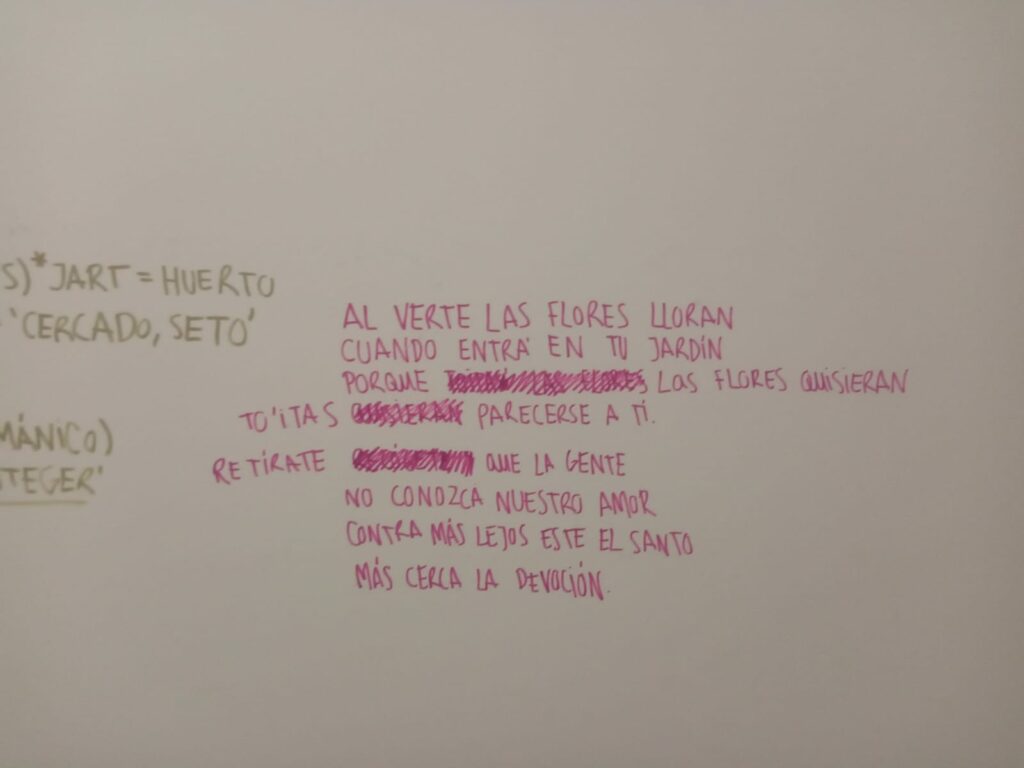 S)*JART = HUERTO
'CERCADO, SETO'
MÁNICO)
TEGER'
AL VERTE LAS FLORES LLORAN
CUANDO ENTRA' EN TU JARDÍN
PORQUE LAS FLORES QUISIERAN
TO'ITAS PARECERSE A TÍ.
RETÍRATE QUE LA GENTE
NO CONOZCA NUESTRO AMOR
CONTRA MÁS LEJOS ESTE EL SANTO
MÁS CERCA LA DEVOCIÓN.